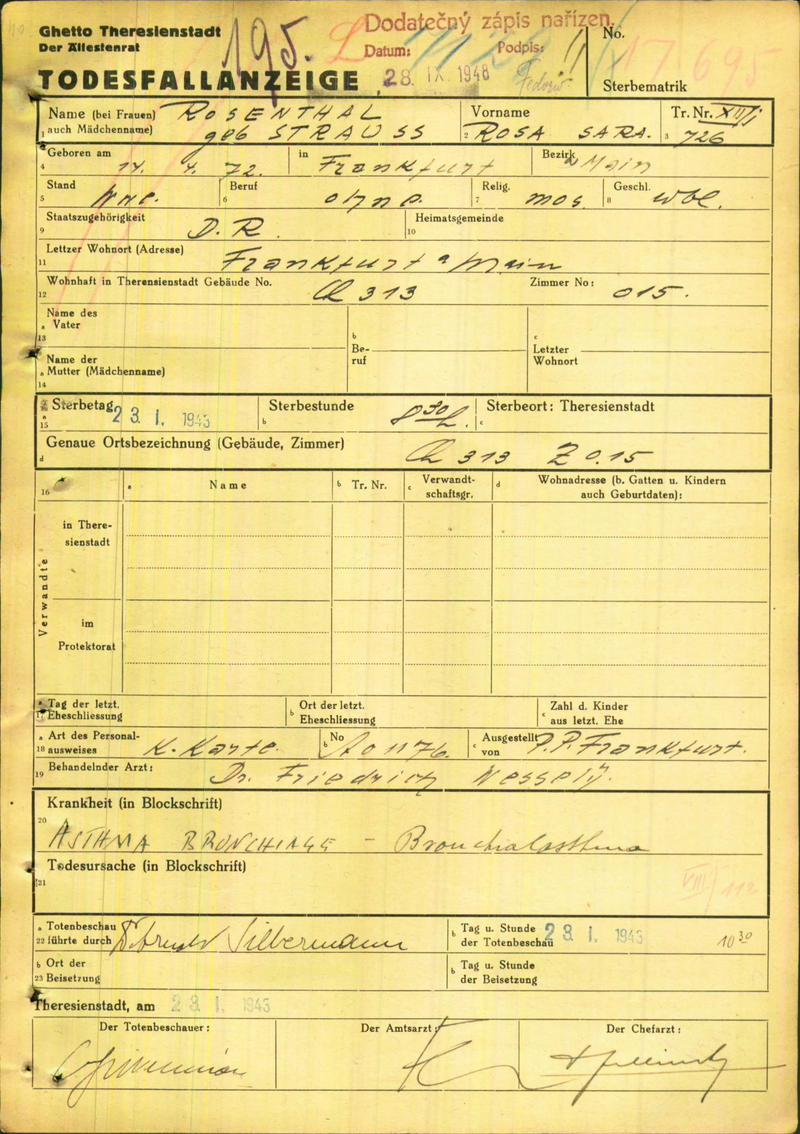 Ghetto Theresienstadt
Der Ällestenrat
TODESFALLANZEIGE
195.
Dodatečný zápis nařízen.
Datum: Podpis:
28 IX 1948
No.
17695
Sterbematrik
Name (bei Frauen) ROSENTHAL
1 auch Mädchenname) geb STRAUSS
Vorname
2 ROSA SARA.
Tr. Nr. XII/1
3 726
Geboren am
4 14. 4. 72.
in Frankfurt
Bezirk a Main
Stand
5
Beruf
6 ohne.
Relig.
7 mos.
Geschl.
8 wbl.
Staatszugehörigkeit
9 D. R.
Heimatsgemeinde
10
Lettzer Wohnort (Adresse)
11 Frankfurt a Main
Wohnhaft in Theresienstadt Gebäude No.
12 313
Zimmer No: 015.
Name des
a Vater
13
b
Be-
ruf
c
Letzter
Wohnort
Name der
a Mutter (Mädchenname)
14
Sterbetag 23. I. 1943
a
15
Sterbestunde 8 30
b
Sterbeort: Theresienstadt
c
Genaue Ortsbezeichnung (Gebäude, Zimmer)
d 313 Z 0.15
16
a Name
b Tr. Nr.
c Verwandt-
schaftsgr.
d Wohnadresse (b. Gatten u. Kindern
auch Geburtdaten):
Verwandte
in There-
sienstadt
im
Protektorat
a Tag der letzt.
17 Eheschliessung
b Ort der letzt.
Eheschliessung
c Zahl d. Kinder
aus letzt. Ehe
a Art des Personal-
18 ausweises K. Karte.
b No A 01176.
c Ausgestellt
von P.P. Frankfurt.
Behandelnder Arzt:
19 Dr. Friedrich Wessely.
Krankheit (in Blockschrift)
20
ASTHMA BRONCHIALE - Bronchialasthma
Todesursache (in Blockschrift)
21
VIII/112
a Totenbeschau
22 führte durch Silbermann
b Tag u. Stunde
der Totenbeschau 23 I. 1943 10 30
b Ort der
23 Beisetzung
b Tag u. Stunde
der Beisetzung
Theresienstadt, am 23 I. 1943
Der Totenbeschauer:
Der Amtsarzt:
Der Chefarzt: